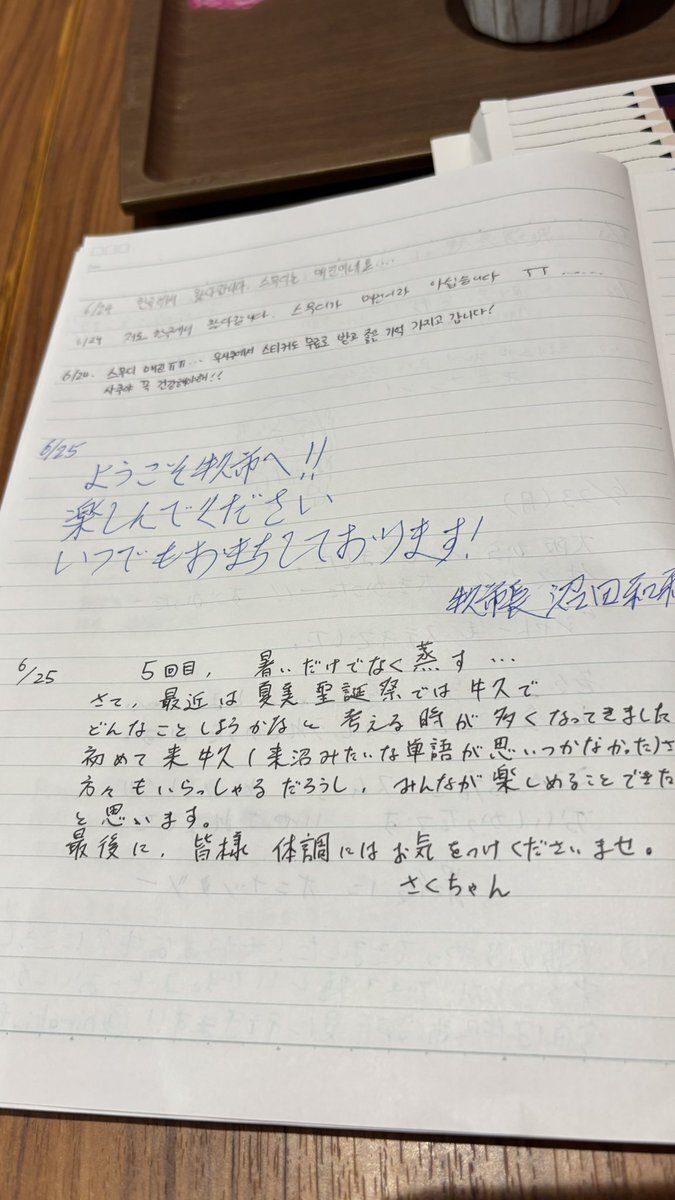 6/24 한국에서 왔다갑니다. 스무디는 매진이네요....
6/24 저도 한국에서 왔다갑니다. 스무디가 매진이라 아쉽습니다 ㅠㅠ ......
6/24. 스무디 매진 ㅠㅠ... 우시쿠에서 스티커도 무료로 받고 좋은 기억 가지고 갑니다!
사쿠야 꼭 건강해야해!!
6/25
ようこそ牛久市へ!!
楽しんでください
いつでもおまちしております!
牛久市長 沼田和利
6/25 5回目、暑いだけでなく蒸す…
さて、最近は夏美 聖誕祭では牛久で
どんなことしようかなと考える時が多くなってきました
初めて来牛久(来沼みたいな単語が思いつかなかった)さ
方々もいらっしゃるだろうし、みんなが楽しめることできた
と思います。
最後に、皆様 体調にはお気をつけくださいませ。
さくちゃん